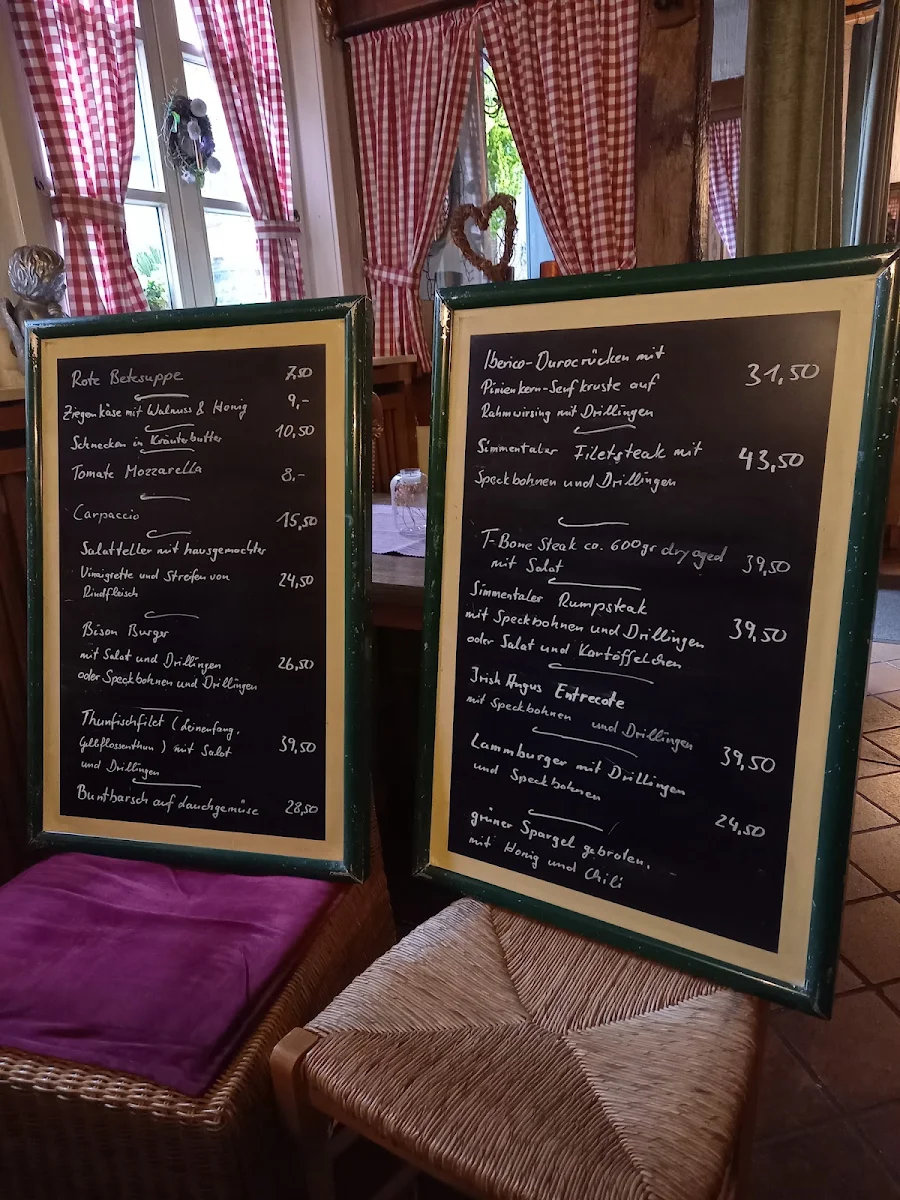 Rote Betesuppe 7,50
Ziegenkäse mit Walnuss & Honig 9,-
Schnecken in Kräuterbutter 10,50
Tomate Mozzarella 8,-
Carpaccio 15,50
Salatteller mit hausgemachter
Vinaigrette und Streifen von 24,50
Rindfleisch
Bison Burger
mit Salat und Drillingen 26,50
oder Speckbohnen und Drillingen
Thunfischfilet (Leinenfang,
Gelbflossenthun) mit Salat 39,50
und Drillingen
Buntbarsch auf Lauchgemüse 28,50
Iberico-Durocrücken mit 31,50
Pinienkern-Senfkruste auf
Rahmwirsing mit Drillingen
Simmentaler Filetsteak mit 43,50
Speckbohnen und Drillingen
T-Bone Steak ca. 600gr dry aged 39,50
mit Salat
Simmentaler Rumpsteak
mit Speckbohnen und Drillingen 39,50
oder Salat und Kartöffelchen
Irish Angus Entrecote
mit Speckbohnen und Drillingen 39,50
Lammburger mit Drillingen
und Speckbohnen 24,50
grüner Spargel gebraten,
mit Honig und Chili